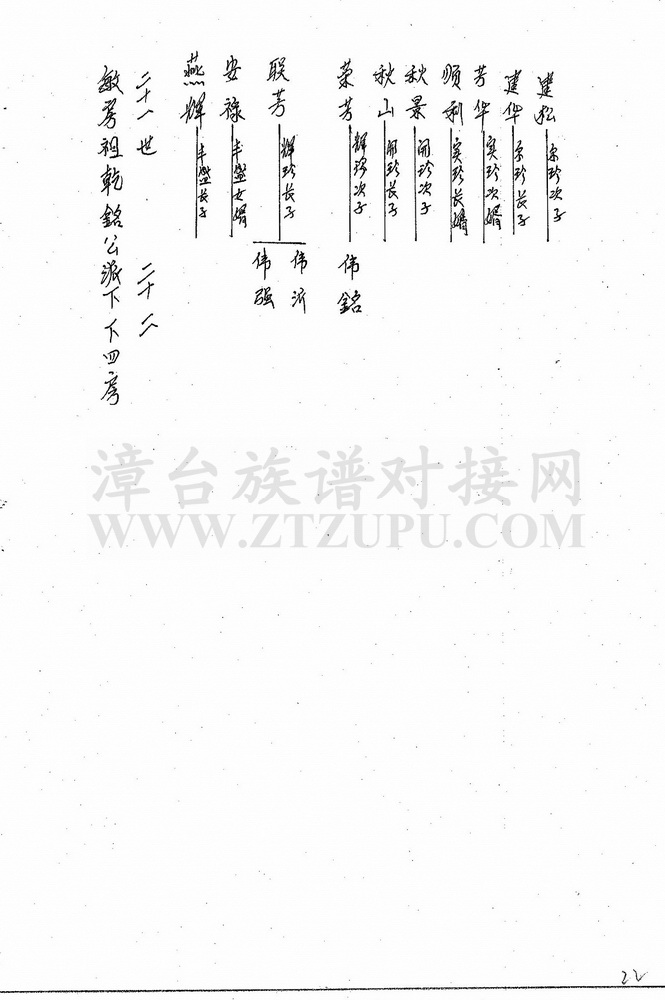 敏房祖乾銘公派下下四房
二十一世 二十二
燕輝 丰盛长子
安祿 丰盛女婿
联芳 輝珍长子 伟强 伟沂
荣芳 輝珍次子 伟銘
秋山 開珍长子
秋景 開珍次子
顺利 実珍长婿
芳华 実珍次婿
建华 珍长子
建松 珍次子
漳台族谱对接网
WWW.ZTZUPU.COM
22